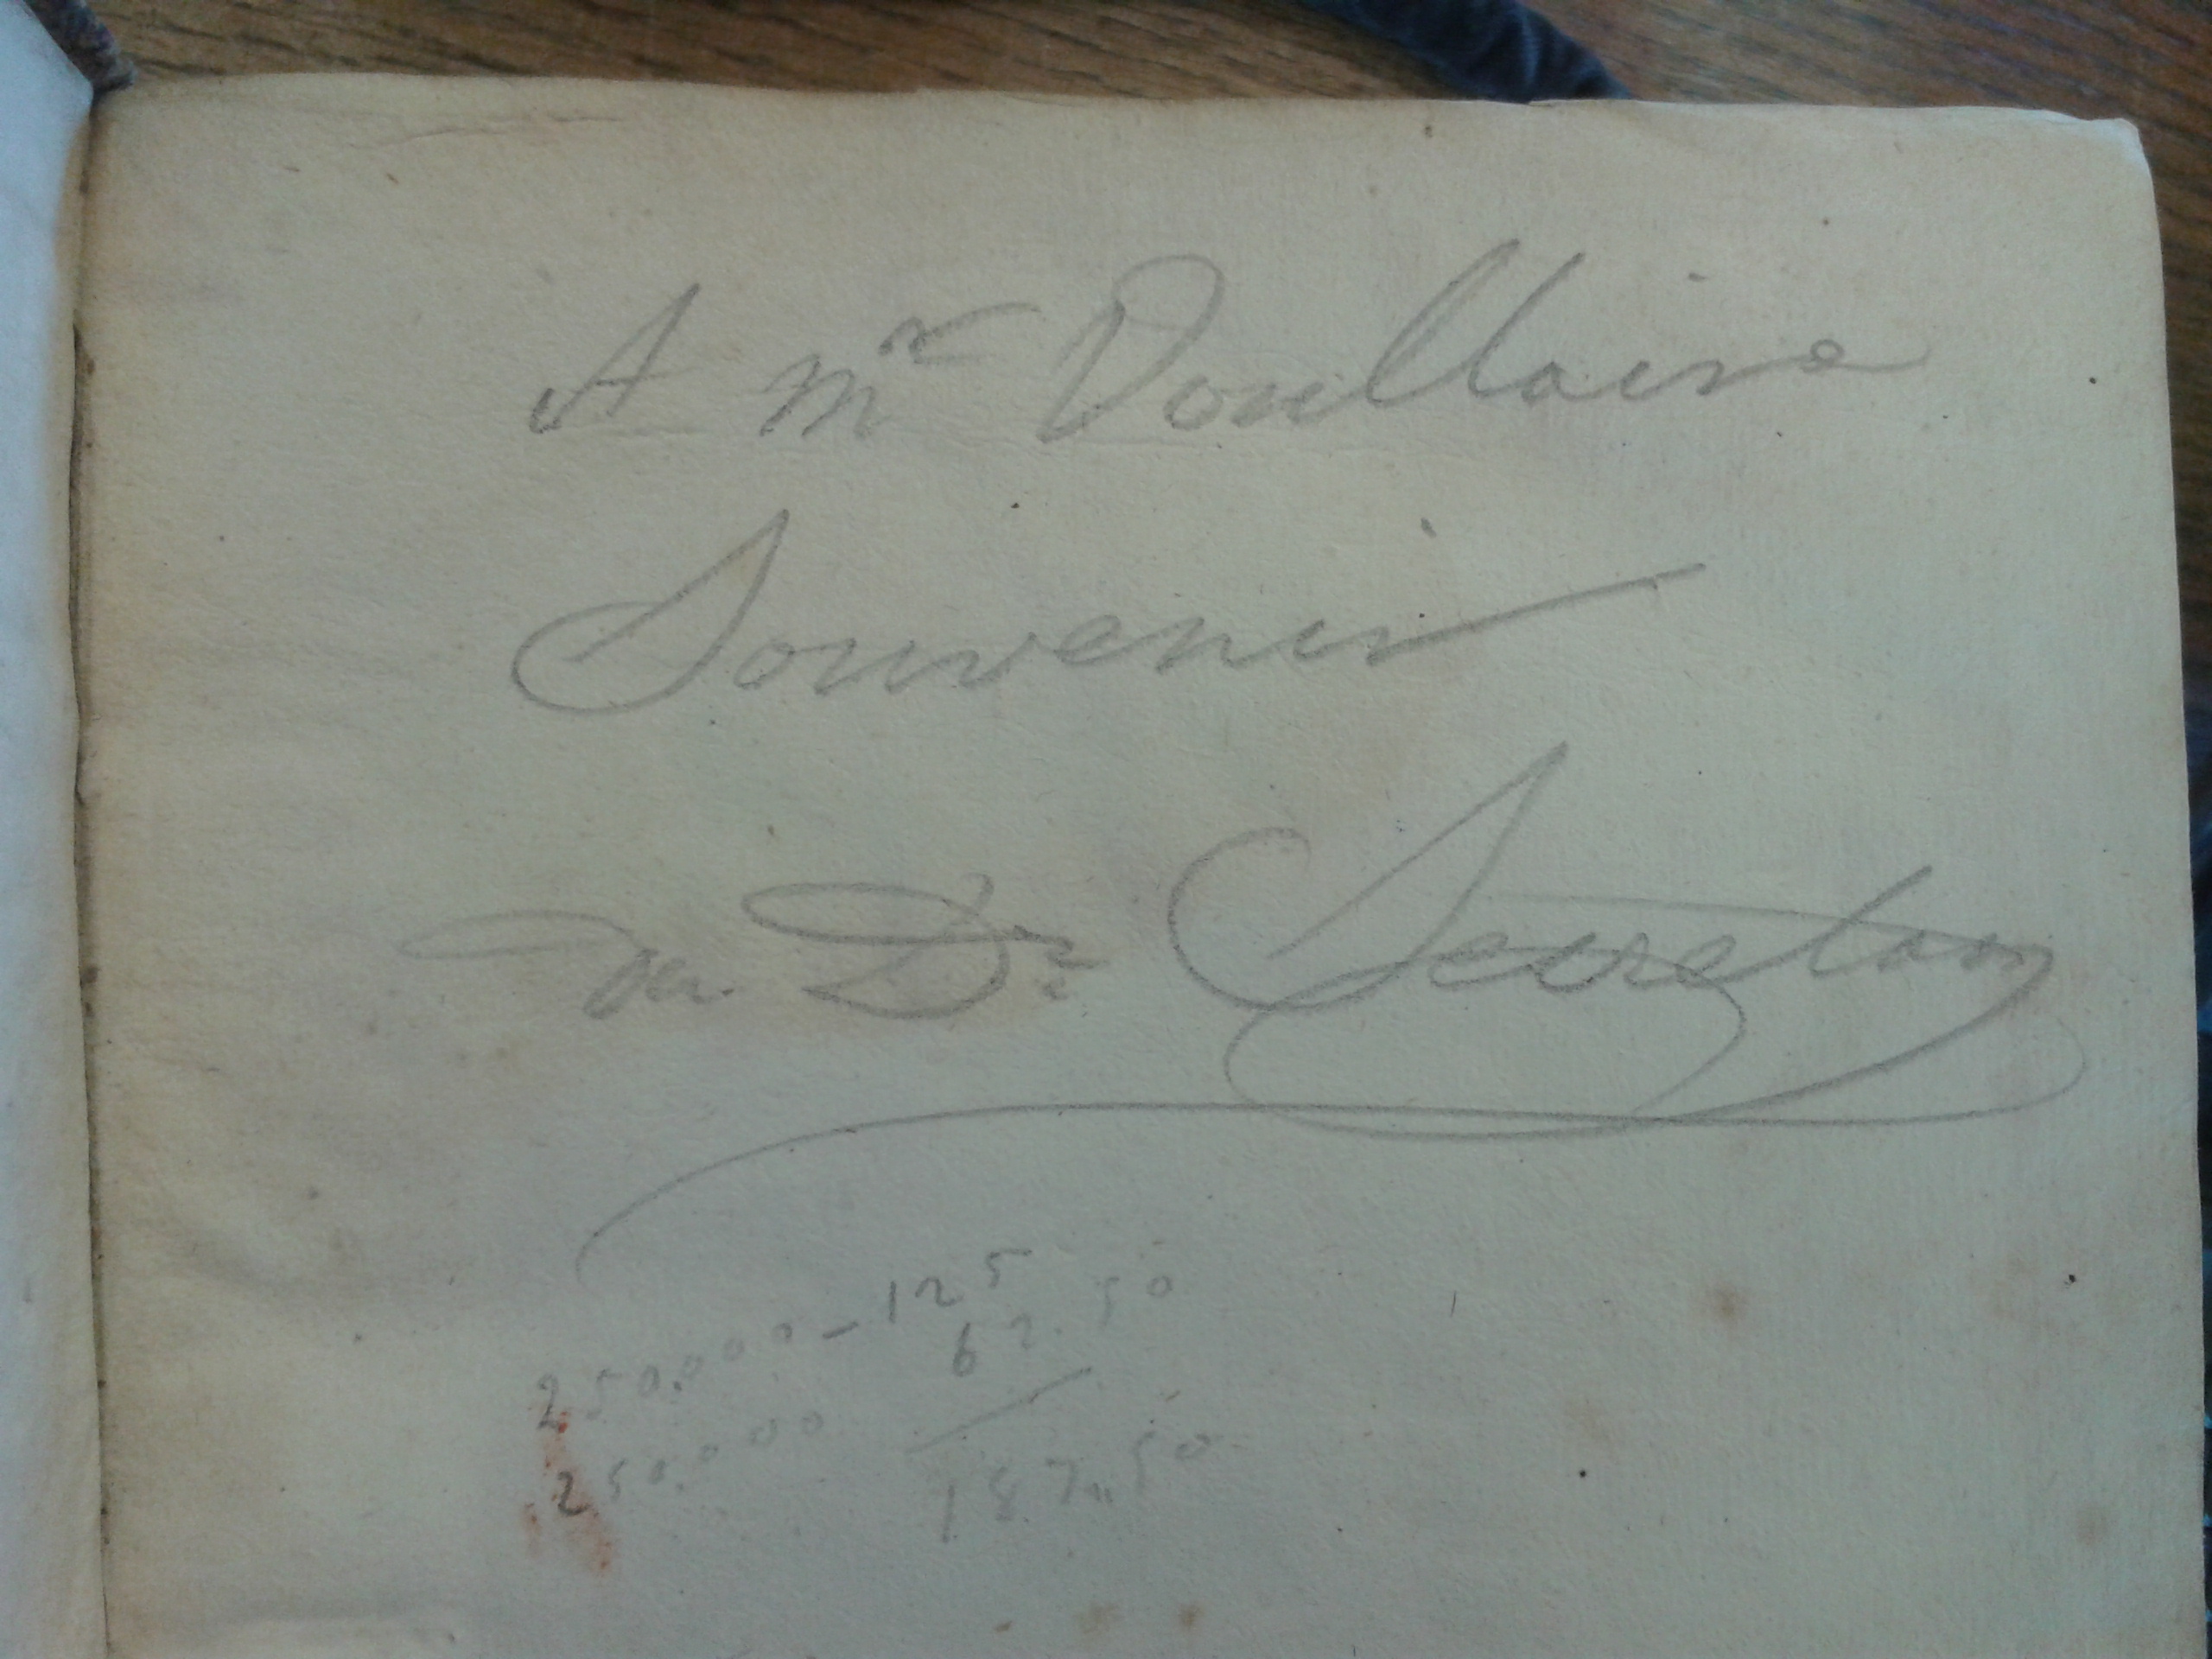 A Mr Doullaire
Souvenir
du Dr Secretan
250.000 - 125
62.50
250.000
187.50